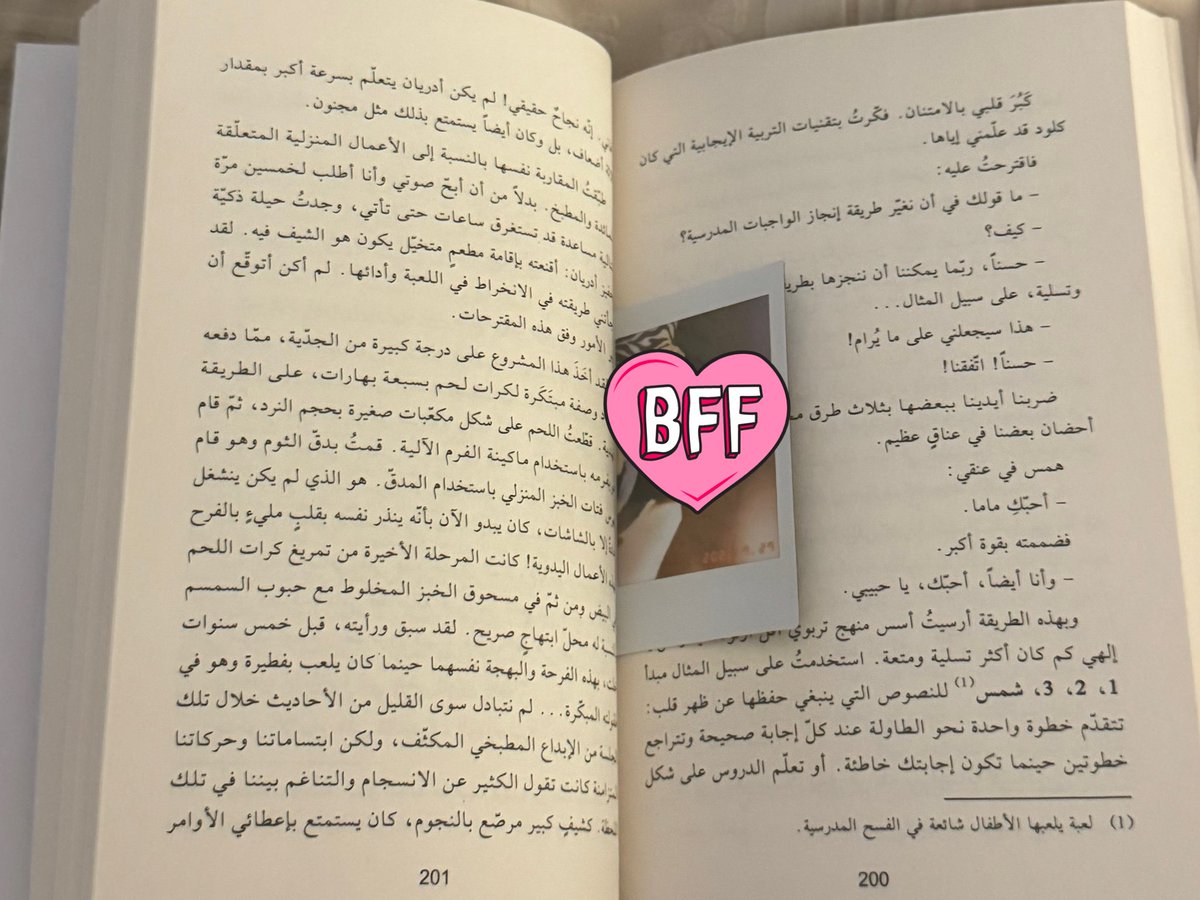 كَبُرَ قلبي بالامتنان. فكّرتُ بتقنيات التربية الإيجابية التي كان
كلود قد علّمني إياها.
فاقترحتُ عليه:
– ما قولك في أن نغيّر طريقة إنجاز الواجبات المدرسية؟
– كيف؟
– حسناً، ربّما يمكننا أن ننجزها
وتسلية، على سبيل المثال...
– هذا سيجعلني على ما يُرام!
– حسناً! اتّفقنا!
ضربنا أيدينا ببعضها بثلاث طرق
أحضان بعضنا في عناقٍ عظيم.
همس في عنقي:
– أحبّكِ ماما.
فضممته بقوة أكبر.
– وأنا أيضاً، أحبّك، يا حبيبي.
وبهذه الطريقة أرسيتُ أسس منهج تربوي
إلهي كم كان أكثر تسلية ومتعة. استخدمتُ على سبيل المثال مبدأ
1، 2، 3، شمس(1) للنصوص التي ينبغي حفظها عن ظهر قلب:
تتقدّم خطوة واحدة نحو الطاولة عند كلّ إجابة صحيحة وتتراجع
خطوتين حينما تكون إجابتك خاطئة. أو تعلّم الدروس على شكل
(1) لعبة يلعبها الأطفال شائعة في الفسح المدرسية.
200
إنّه نجاحٌ حقيقي! لم يكن أدريان يتعلّم بسرعة أكبر بمقدار
أضعاف، بل وكان أيضاً يستمتع بذلك مثل مجنون.
طبّقتُ المقاربة نفسها بالنسبة إلى الأعمال المنزلية المتعلّقة
والمطبخ. بدلاً من أن أبحّ صوتي وأنا أطلب لخمسين مرّة
مساعدة قد تستغرق ساعات حتى تأتي، وجدتُ حيلة ذكيّة
أدريان: أقنعته بإقامة مطعمٍ متخيّل يكون هو الشيف فيه. لقد
طريقته في الانخراط في اللعبة وأدائها. لم أكن أتوقّع أن
الأمور وفق هذه المقترحات.
أخَذَ هذا المشروع على درجة كبيرة من الجدّية، ممّا دفعه
وصفة مبتَكَرة لكرات لحم بسبعة بهارات، على الطريقة
قطّعتُ اللحم على شكل مكعّبات صغيرة بحجم النرد، ثمّ قام
باستخدام ماكينة الفرم الآلية. قمتُ بدقّ الثوم وهو قام
فتات الخبز المنزلي باستخدام المدقّ. هو الذي لم يكن ينشغل
إلا بالشاشات، كان يبدو الآن بأنّه ينذر نفسه بقلبٍ مليءٍ بالفرح
الأعمال اليدوية! كانت المرحلة الأخيرة من تمريغ كرات اللحم
البيض ومن ثمّ في مسحوق الخبز المخلوط مع حبوب السمسم
له محلّ ابتهاجٍ صريح. لقد سبق ورأيته، قبل خمس سنوات
بهذه الفرحة والبهجة نفسهما حينما كان يلعب بفطيرة وهو في
المبكّرة... لم نتبادل سوى القليل من الأحاديث خلال تلك
من الإبداع المطبخي المكثّف، ولكن ابتساماتنا وحركاتنا
كانت تقول الكثير عن الانسجام والتناغم بيننا في تلك
كشيفٍ كبير مرصّع بالنجوم، كان يستمتع بإعطائي الأوامر
201
BFF